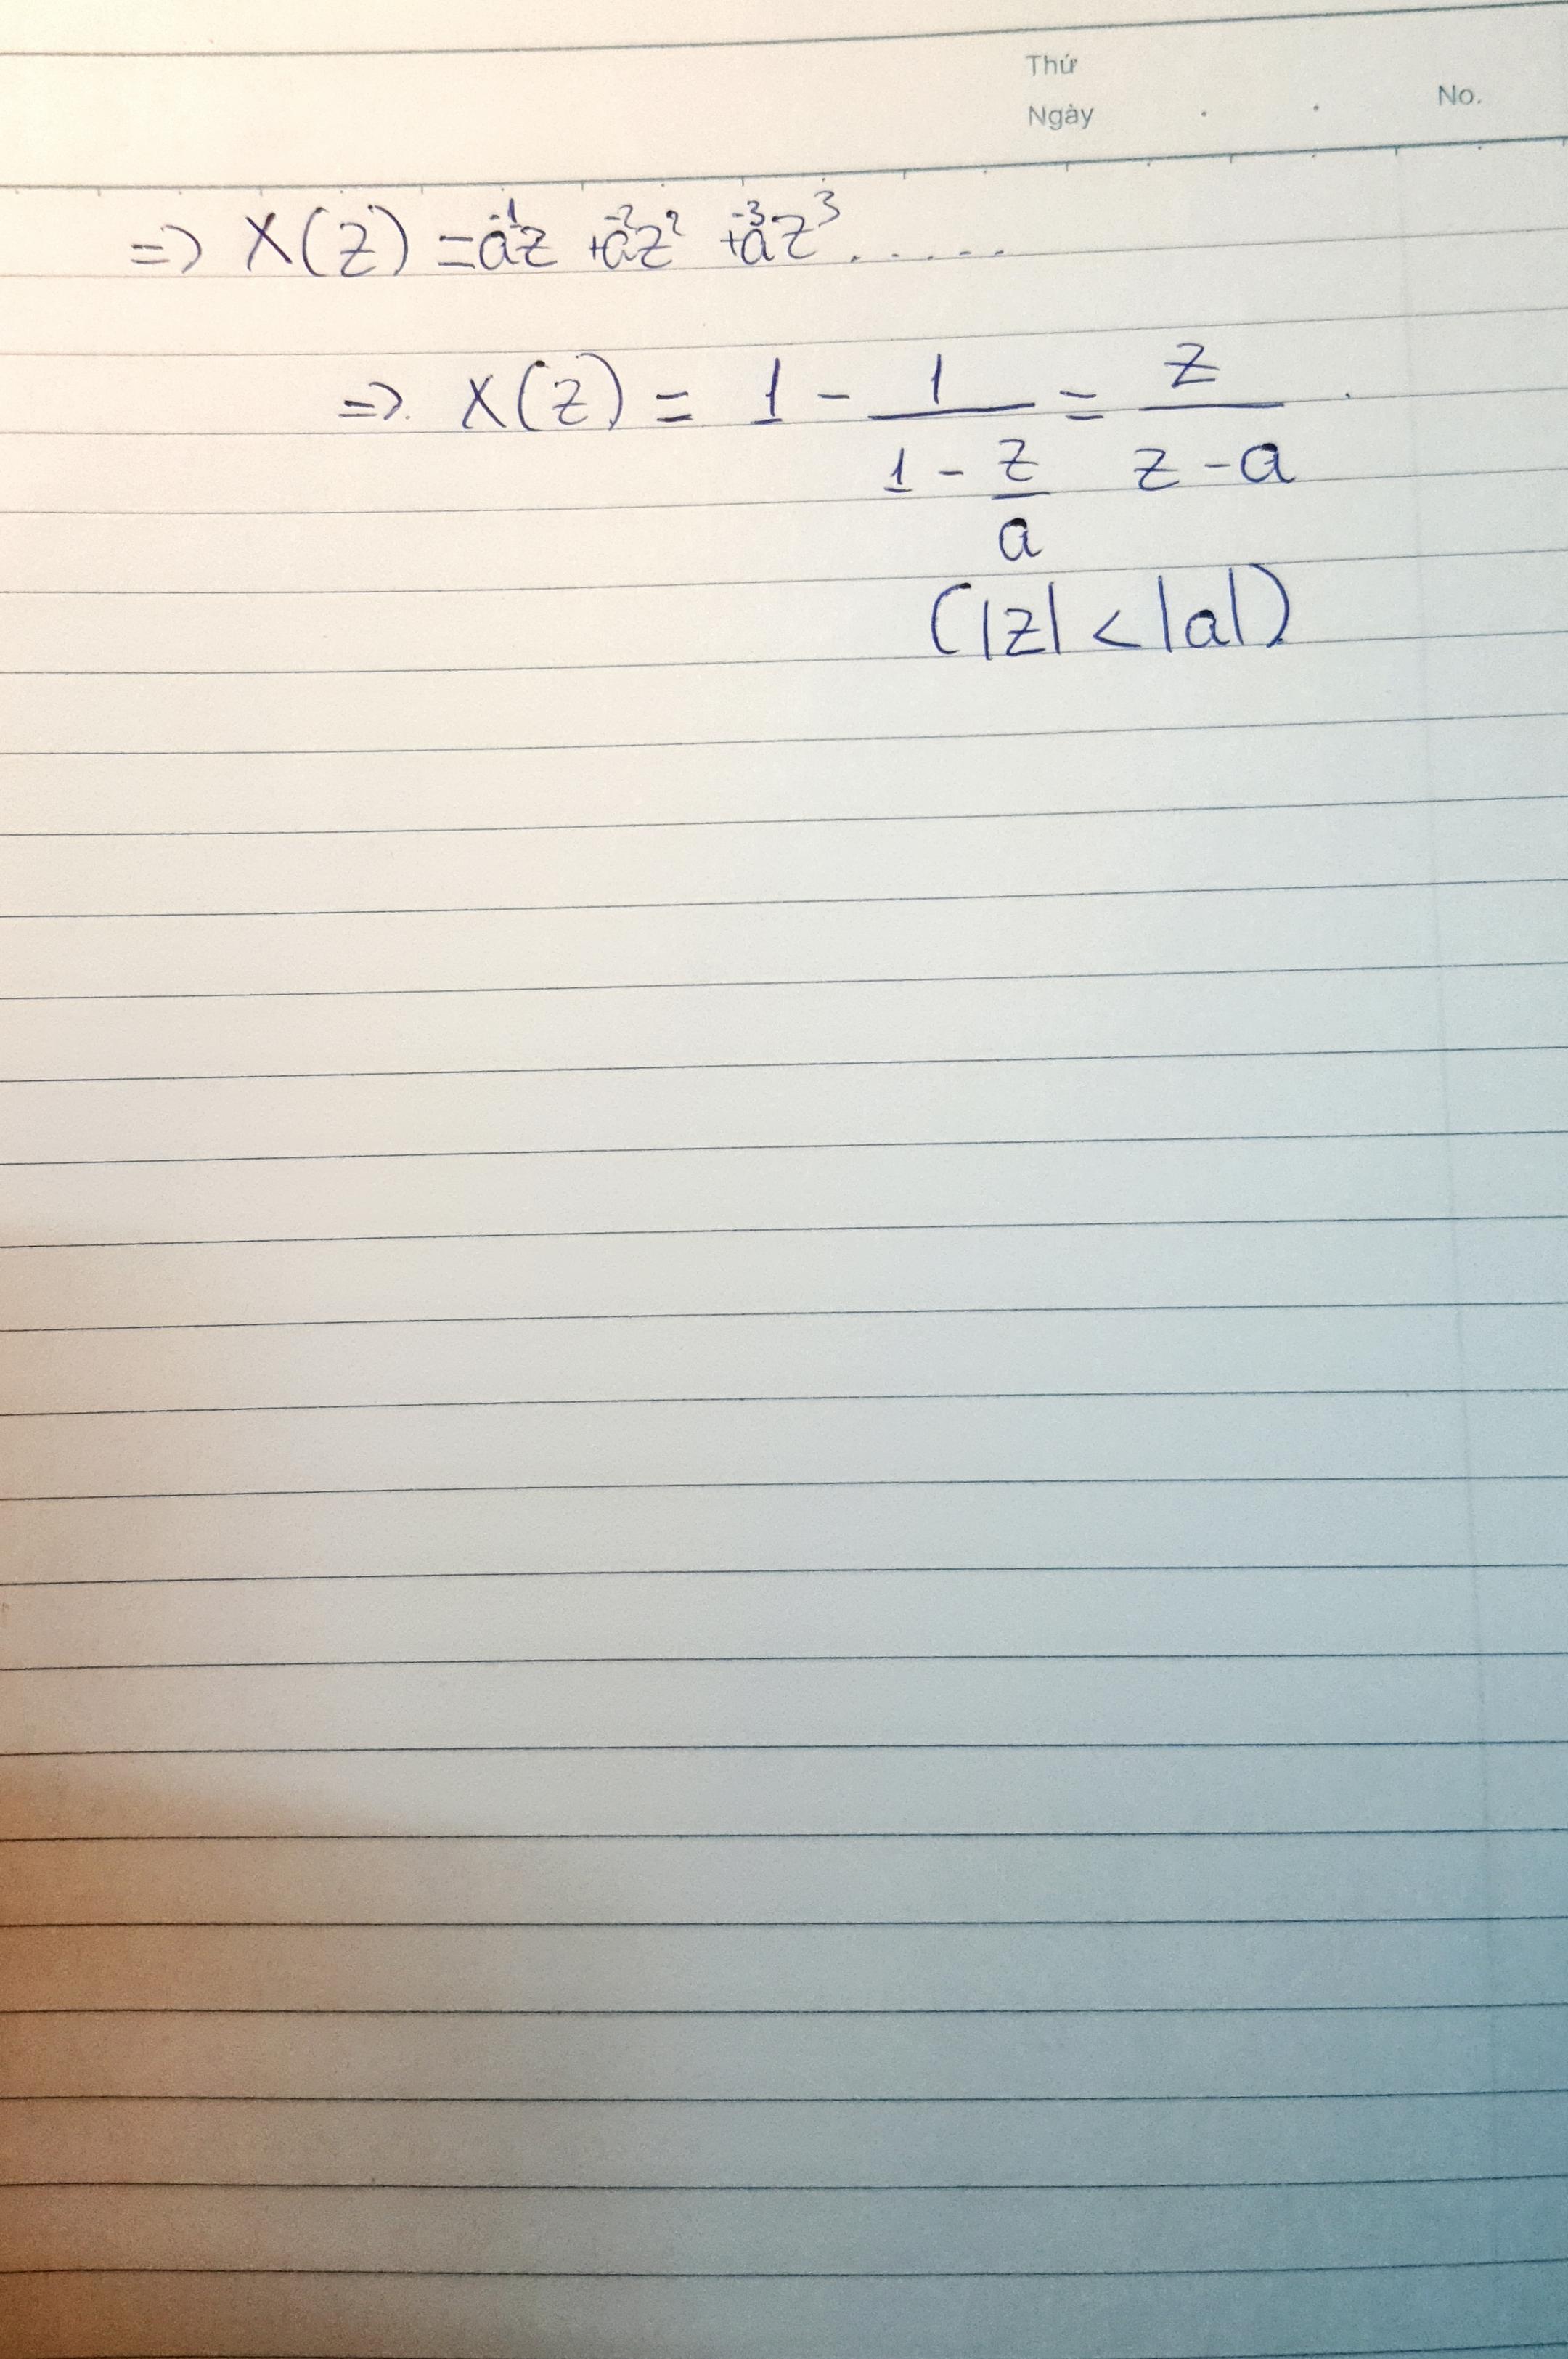 Thứ
Ngày . . No.
=> X(z) = a⁻¹z + a⁻²z² + a⁻³z³ . . . . .
=> X(z) = 1 - 1/(1 - z/a) = z/(z - a) .
(|z| < |a|)